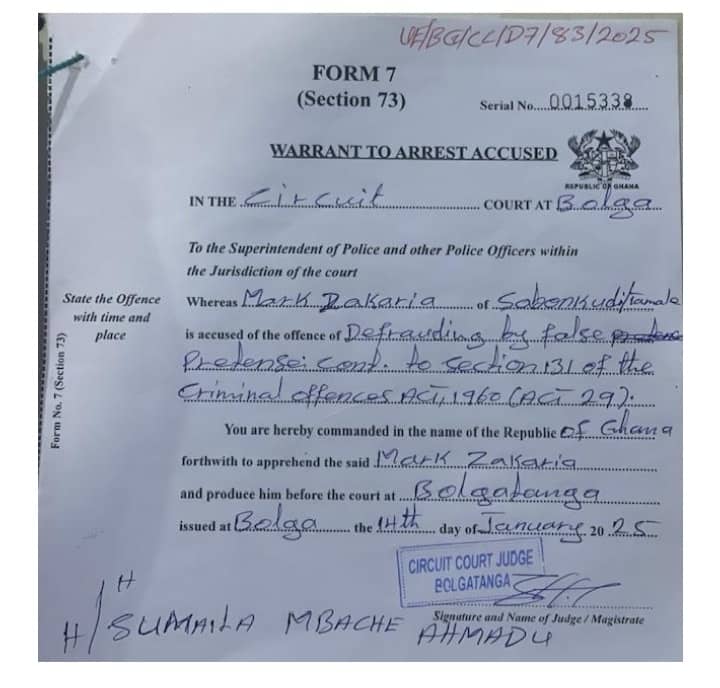 UE/BG/CC/D7/83/2025
FORM 7
(Section 73)
Serial No....0015338.....
WARRANT TO ARREST ACCUSED
REPUBLIC OF GHANA
IN THE Circuit COURT AT Bolga
To the Superintendent of Police and other Police Officers within
the Jurisdiction of the court
State the Offence
with time and
place
Whereas Mark Zakaria of Sabonkudi/Tamale
is accused of the offence of Defrauding by false pretense
Pretense: cont. to section 131 of the
Criminal offences ACT, 1960 (ACT 29).
You are hereby commanded in the name of the Republic of Ghana
forthwith to apprehend the said Mark Zakaria
and produce him before the court at Bolgatanga
issued at Bolga the 14th day of January 20 25
CIRCUIT COURT JUDGE
BOLGATANGA
Signature and Name of Judge / Magistrate
H
H/SUMAILA MBACHE AHMADU
Form No. 7 (Section 73)